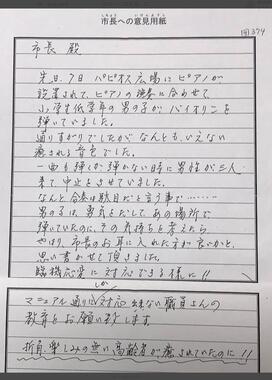 市長への意見用紙
市長 殿
先日、7日 パピオス広場にピアノが
設置されて、ピアノの演奏に合わせて
小学生低学年の男の子が、バイオリンを
弾いていました。
通りすがりでしたがなんとも、いえない
癒される音色でした。
一曲も弾くか弾かない時に男性が三人
来て中止をさせていました。
なんと合奏は駄目だと言う事で‥‥‥‥
男の子は、勇気をだして あの場所で
弾いていたのに、その気持ちを考えたら
やはり、市長のお耳に入れた方が良いかと、
思い書かせて頂きました。
臨機応変に対応できる様に!!
マニュアル通りにしか対応出来ない職員さんの
教育をお願い致します。
折角、楽しみの無い高齢者が癒されていたのに!!